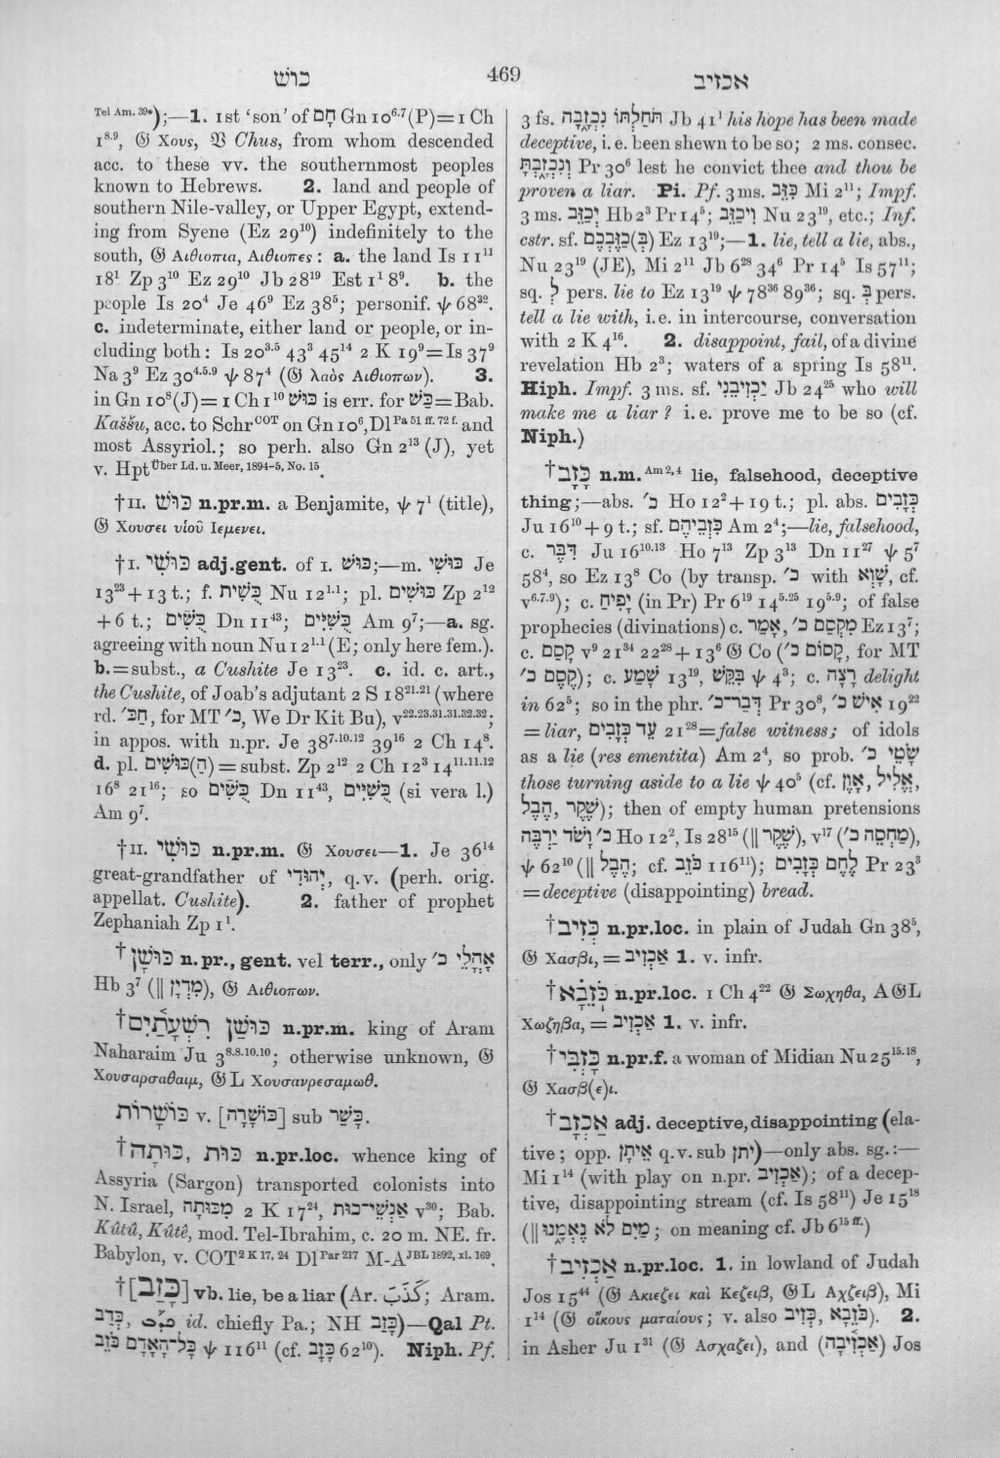 כושׁ
469
אכזיב
Tel Am. 39*);—1. 1st ‘son’ of חָם Gn 10⁶·⁷ (P)=1 Ch
1⁸·⁹, 𝔊 Χους, 𝔙 Chus, from whom descended
acc. to these vv. the southernmost peoples
known to Hebrews. 2. land and people of
southern Nile-valley, or Upper Egypt, extend-
ing from Syene (Ez 29¹⁰) indefinitely to the
south, 𝔊 Αιθιοπια, Αιθιοπες: a. the land Is 11¹¹
18¹ Zp 3¹⁰ Ez 29¹⁰ Jb 28¹⁹ Est 1¹ 8⁹. b. the
people Is 20⁴ Je 46⁹ Ez 38⁵; personif. ψ 68³².
c. indeterminate, either land or people, or in-
cluding both: Is 20³·⁵ 43³ 45¹⁴ 2 K 19⁹=Is 37⁹
Na 3⁹ Ez 30⁴·⁵·⁹ ψ 87⁴ (𝔊 λαὸς Αιθιοπων). 3.
in Gn 10⁸ (J)=1 Ch 1¹⁰ כּוּשׁ is err. for כַּשׁ=Bab.
Kaššu, acc. to Schr COT on Gn 10⁶, Dl Pa 51 ff. 72 f. and
most Assyriol.; so perh. also Gn 2¹³ (J), yet
v. Hpt Über Ld. u. Meer, 1894–5, No. 15.
†II. כּוּשׁ n.pr.m. a Benjamite, ψ 7¹ (title),
𝔊 Χουσει υἱοῦ Ιεμενει.
†I. כּוּשִׁי adj.gent. of I. כּוּשׁ;—m. כּוּשִׁי Je
13²³ + 13 t.; f. כֻּשִׁית Nu 12¹·¹; pl. כּוּשִׁים Zp 2¹²
+ 6 t.; כֻּשִׁים Dn 11⁴³; כֻּשִׁיִּים Am 9⁷;—a. sg.
agreeing with noun Nu 12¹·¹ (E; only here fem.).
b.=subst., a Cushite Je 13²³. c. id. c. art.,
the Cushite, of Joab's adjutant 2 S 18²¹·²¹ (where
rd. הַכּ׳, for MT כ׳, We Dr Kit Bu), v²²·²³·³¹·³¹·³²·³²;
in appos. with n.pr. Je 38⁷·¹⁰·¹² 39¹⁶ 2 Ch 14⁸.
d. pl. (הַ)כּוּשִׁים = subst. Zp 2¹² 2 Ch 12³ 14¹¹·¹¹·¹²
16⁸ 21¹⁶; so כֻּשִׁים Dn 11⁴³, כֻּשִׁיִּים (si vera l.)
Am 9⁷.
†II. כּוּשִׁי n.pr.m. 𝔊 Χουσει—1. Je 36¹⁴
great-grandfather of יְהוּדִי, q.v. (perh. orig.
appellat. Cushite). 2. father of prophet
Zephaniah Zp 1¹.
†כּוּשָׁן n.pr., gent. vel terr., only אָהֳלֵי כ׳
Hb 3⁷ (‖ מִדְיָן), 𝔊 Αιθιοπων.
†כּוּשַׁן רִשְׁעָתַ֫יִם n.pr.m. king of Aram
Naharaim Ju 3⁸·⁸·¹⁰·¹⁰; otherwise unknown, 𝔊
Χουσαρσαθαιμ, 𝔊L Χουσανρεσαμωθ.
כּוֹשָׁרוֹת v. [כּוֹשָׁרָה] sub כָּשַׁר.
†כּוּתָה, כּוּת n.pr.loc. whence king of
Assyria (Sargon) transported colonists into
N. Israel, מִכּוּתָה 2 K 17²⁴, אַנְשֵׁי־כוּת v³⁰; Bab.
Kûtû, Kûtê, mod. Tel-Ibrahim, c. 20 m. NE. fr.
Babylon, v. COT 2 K 17, 24 Dl Par 217 M-A JBL 1892, xi. 169.
†[כָּזַב] vb. lie, be a liar (Ar. كَذَبَ; Aram.
כְּדַב, id. chiefly Pa.; NH כָּזַב)—Qal Pt.
כָּל־הָאָדָם כֹּזֵב ψ 116¹¹ (cf. כָּזָב 62¹⁰). Niph. Pf.
3 fs. תֹּחַלְתּוֹ נִכְזָ֑בָה Jb 41¹ his hope has been made
deceptive, i.e. been shewn to be so; 2 ms. consec.
וְנִכְזָ֑בְתָּ Pr 30⁶ lest he convict thee and thou be
proven a liar. Pi. Pf. 3 ms. כִּזֵּב Mi 2¹¹; Impf.
3 ms. יְכַזֵּב Hb 2³ Pr 14⁵; וִיכַזֵּב Nu 23¹⁹, etc.; Inf.
cstr. sf. (בְּ)כַזֶּבְכֶם Ez 13¹⁹;—1. lie, tell a lie, abs.,
Nu 23¹⁹ (JE), Mi 2¹¹ Jb 6²⁸ 34⁶ Pr 14⁵ Is 57¹¹;
sq. לְ pers. lie to Ez 13¹⁹ ψ 78³⁶ 89³⁶; sq. בְּ pers.
tell a lie with, i.e. in intercourse, conversation
with 2 K 4¹⁶. 2. disappoint, fail, of a divine
revelation Hb 2³; waters of a spring Is 58¹¹.
Hiph. Impf. 3 ms. sf. יַכְזִיבֵנִי Jb 24²⁵ who will
make me a liar? i.e. prove me to be so (cf.
Niph.)
†כָּזָב n.m. Am 2, 4 lie, falsehood, deceptive
thing;—abs. כ׳ Ho 12² + 19 t.; pl. abs. כְּזָבִים
Ju 16¹⁰ + 9 t.; sf. כִּזְבֵיהֶם Am 2⁴;—lie, falsehood,
c. דִּבֶּר Ju 16¹⁰·¹³ Ho 7¹³ Zp 3¹³ Dn 11²⁷ ψ 5⁷
58⁴, so Ez 13⁸ Co (by transp. כ׳ with שָׁוְא, cf.
v⁶·⁷·⁹); c. יָפִיחַ (in Pr) Pr 6¹⁹ 14⁵·²⁵ 19⁵·⁹; of false
prophecies (divinations) c. אָמַר, מִקְסַם כ׳ Ez 13⁷;
c. קָסַם v⁹ 21³⁴ 22²⁸ + 13⁶ 𝔊 Co (קָסוֹם כ׳, for MT
קֶסֶם כ׳); c. שָׁמַע 13¹⁹, בִּקֵּשׁ ψ 4³; c. רָצָה delight
in 62⁵; so in the phr. דְּבַר־כ׳ Pr 30⁸, אִישׁ כ׳ 19²²
= liar, עֵד כְּזָבִים 21²⁸=false witness; of idols
as a lie (res ementita) Am 2⁴, so prob. שָׂטֵי כ׳
those turning aside to a lie ψ 40⁵ (cf. אָוֶן, אֱלִיל,
הֶבֶל, שֶׁקֶר); then of empty human pretensions
כ׳ וָשֹׁד יַרְבֶּה Ho 12², Is 28¹⁵ (‖ שֶׁקֶר), v¹⁷ (מַחְסֵה כ׳),
ψ 62¹⁰ (‖ הֶבֶל; cf. כֹּזֵב 116¹¹); לֶחֶם כְּזָבִים Pr 23³
= deceptive (disappointing) bread.
†כְּזִיב n.pr.loc. in plain of Judah Gn 38⁵,
𝔊 Χασβι, = אַכְזִיב 1. v. infr.
†כֹּזֵבָא n.pr.loc. 1 Ch 4²² 𝔊 Σωχηθα, A𝔊L
Χωζηβα, = אַכְזִיב 1. v. infr.
†כָּזְבִּי n.pr.f. a woman of Midian Nu 25¹⁵·¹⁸,
𝔊 Χασβ(ε)ι.
†אַכְזָב adj. deceptive, disappointing (ela-
tive; opp. אֵיתָן q.v. sub יתן)—only abs. sg.:—
Mi 1¹⁴ (with play on n.pr. אַכְזִיב); of a decep-
tive, disappointing stream (cf. Is 58¹¹) Je 15¹⁸
(‖ מַיִם לֹא נֶאֱמָ֑נוּ; on meaning cf. Jb 6¹⁵ ᶠᶠ·)
†אַכְזִיב n.pr.loc. 1. in lowland of Judah
Jos 15⁴⁴ (𝔊 Ακιεζει καὶ Κεζειβ, 𝔊L Αχζειβ), Mi
1¹⁴ (𝔊 οἴκους ματαίους; v. also כְּזִיב, כֹּזֵבָא). 2.
in Asher Ju 1³¹ (𝔊 Ασχαζει), and (אַכְזִ֫יבָה) Jos